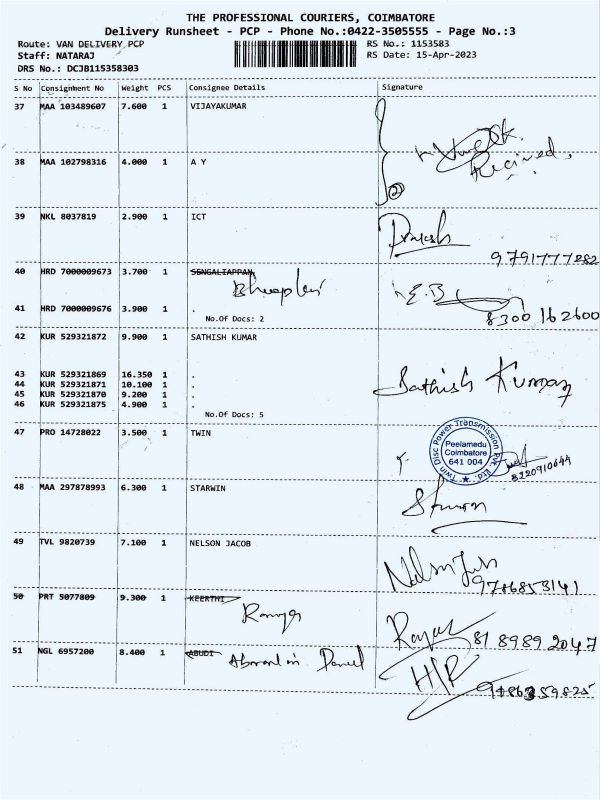 THE PROFESSIONAL COURIERS, COIMBATORE
Delivery Runsheet - PCP - Phone No.:0422-3505555 - Page No.:3
Route: VAN DELIVERY PCP RS No.: 1153583
Staff: NATARAJ RS Date: 15-Apr-2023
DRS No.: DCJB115358303
S No Consignment No Weight PCS Consignee Details Signature
37 MAA 103489607 7.600 1 VIJAYAKUMAR
Recived.
38 MAA 102798316 4.000 1 A Y
2
39 NKL 8037819 2.900 1 ICT
9791777282
40 HRD 7000009673 3.700 1 SENGALIAPPAN
E.B
41 HRD 7000009676 3.900 1 .
No.Of Docs: 2
8300162600
42 KUR 529321872 9.900 1 SATHISH KUMAR
43 KUR 529321869 16.350 1 .
44 KUR 529321871 10.100 1 .
Sathish Kumar
45 KUR 529321870 9.200 1 .
46 KUR 529321875 4.900 1 .
No.Of Docs: 5
47 PRO 14728022 3.500 1 TWIN
Twin Disc Power Transmission Pvt. Ltd.
Peelamedu
Coimbatore
641 004
8220910644
48 MAA 297878993 6.300 1 STARWIN
49 TVL 9820739 7.100 1 NELSON JACOB
9786853141
50 PRT 5077809 9.300 1 KEERTHI
8189892047
51 NGL 6957200 8.400 1 ABUDI
Daniel
H/R